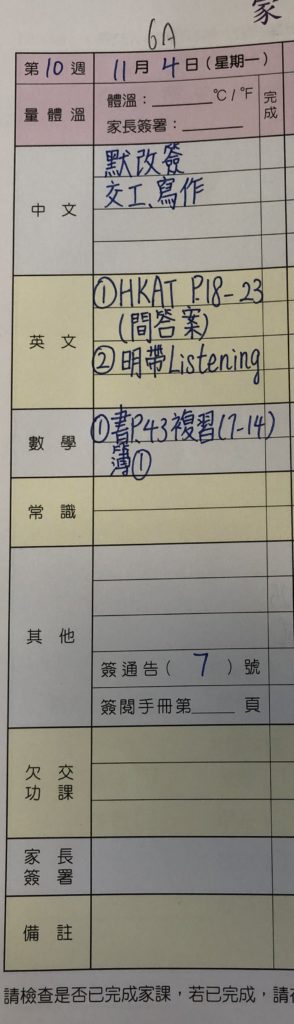 家
6A
第10週 11月4日(星期一)
量體溫 體溫：______°C/°F 完成
家長簽署：______
中文 默改簽
交工、寫作
英文 ①HKAT P.18-23
(間答案)
②明帶Listening
數學 ①書P.43複習(7-14)
簿①
常識
其他
簽通告( 7 )號
簽閱手冊第____頁
欠交功課
家長簽署
備註
請檢查是否已完成家課，若已完成，請